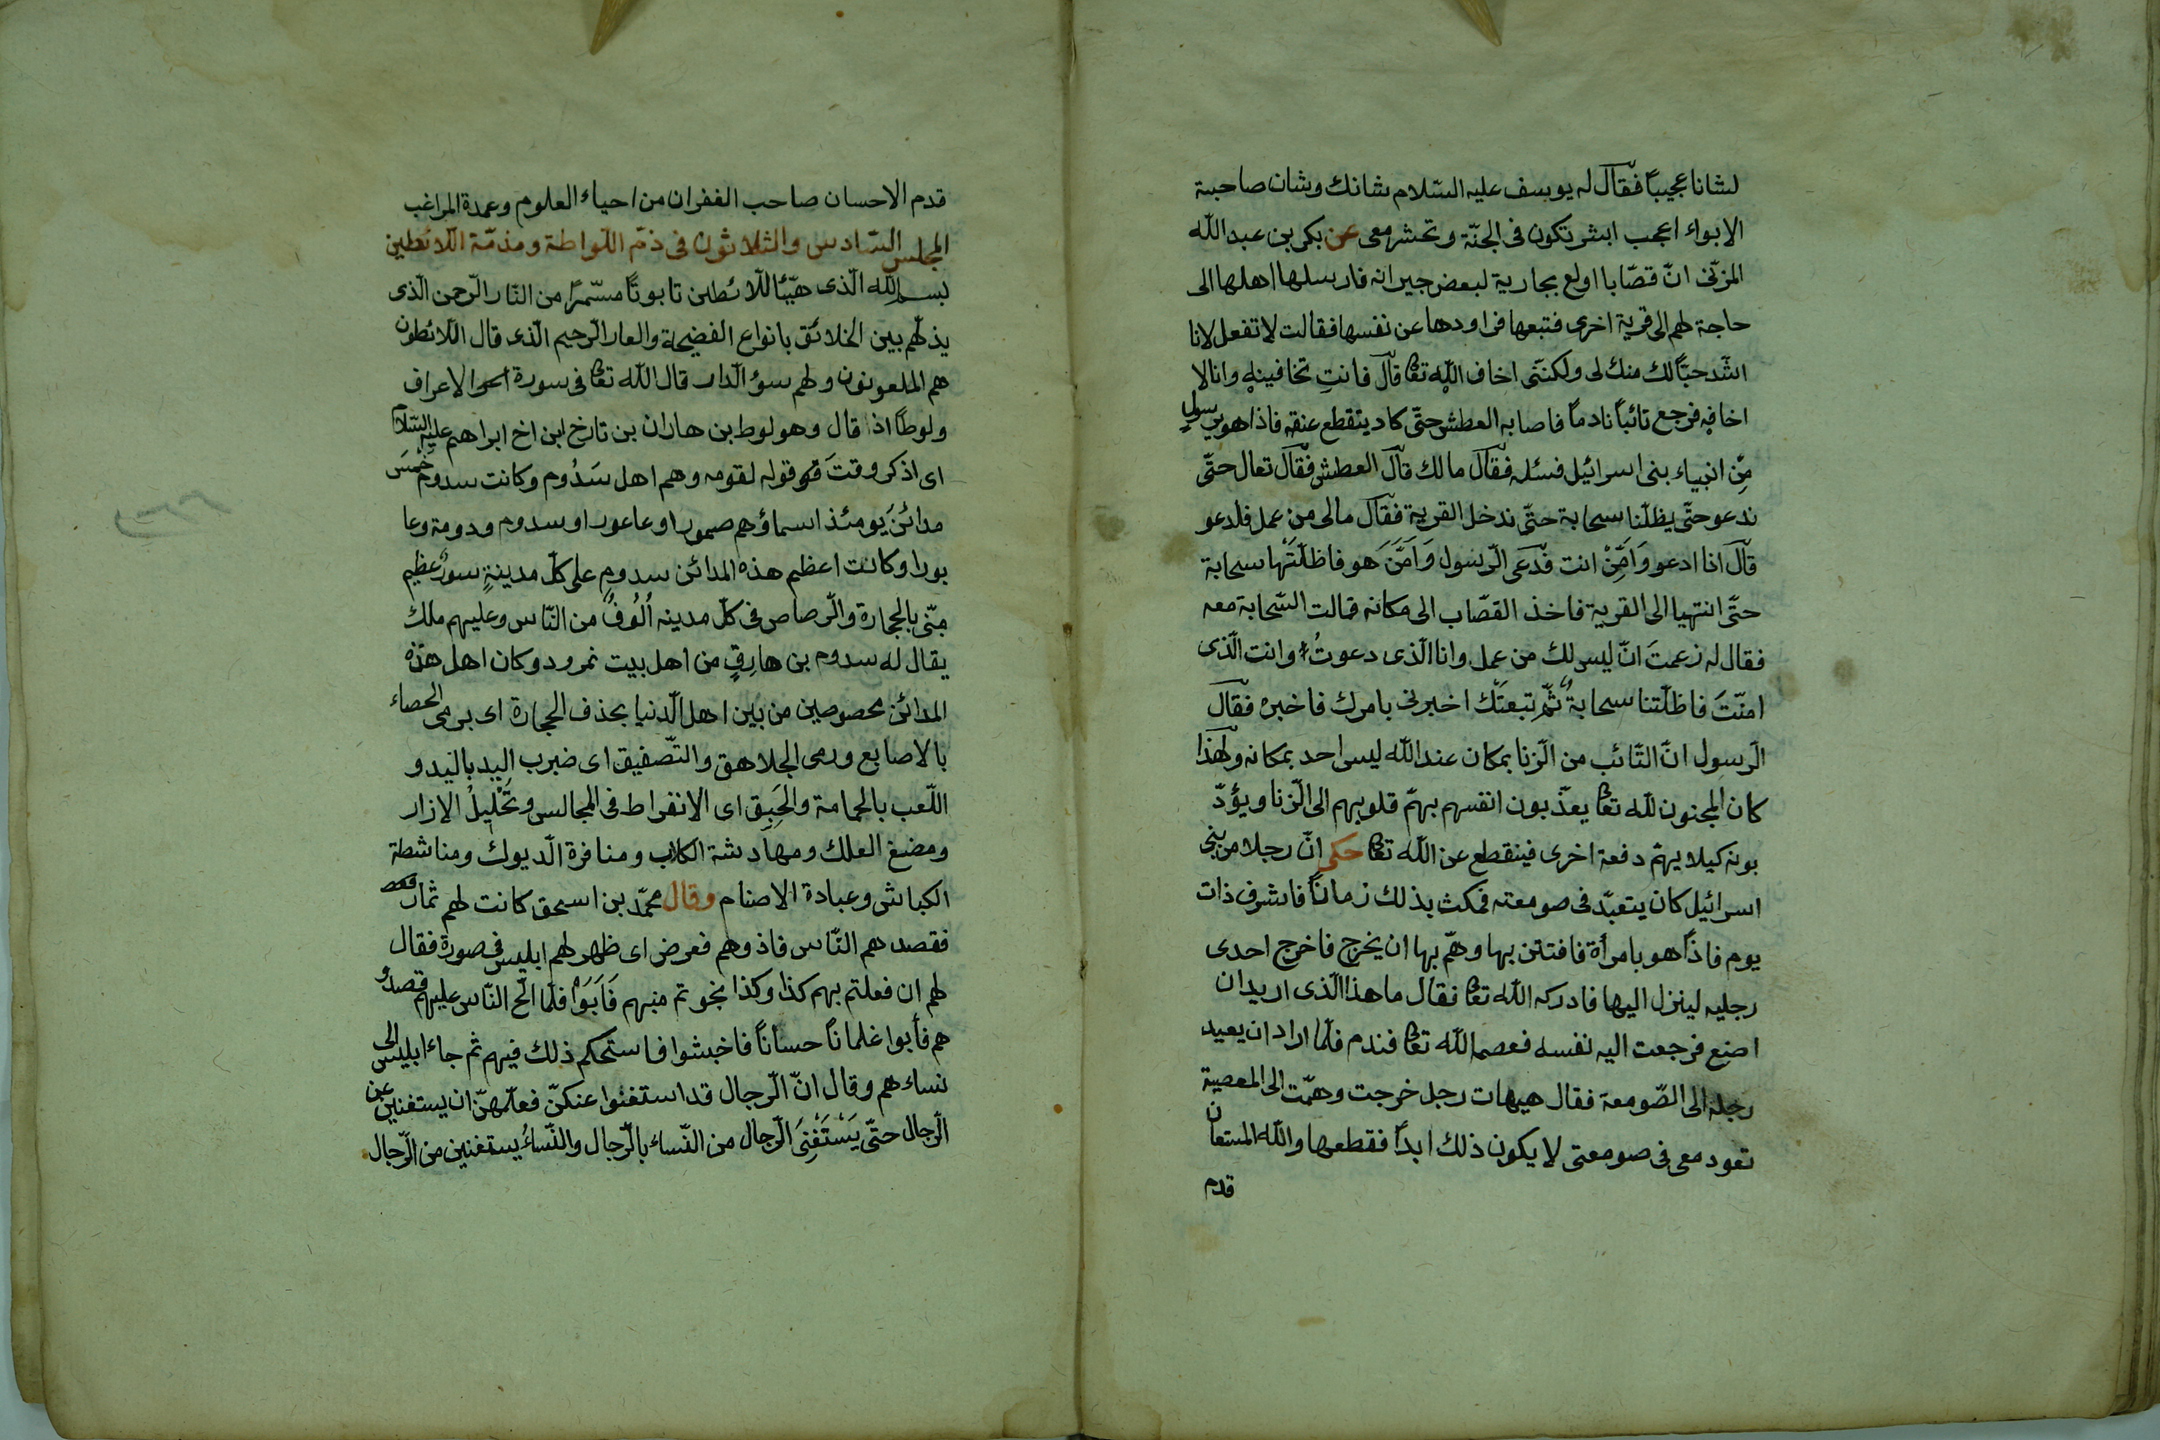 لشانا عجيباً فقال له يوسف عليه السّلام شانك وشان صاحبة
الابواء اعجب ابشر تكون فى الجنّة وتحشر معى عن بكر بن عبد اللّه
المزنّى انّ قصّابا اولع بجارية لبعض جيرانه فارسلها اهلها الى
حاجة لهم الى قرية اخرى فتبعها فراودها عن نفسها فقالت لا تفعل لانا
اشّد حبّاً لك منك لى ولكننّى اخاف اللّه تعا قال فانتِ تخافينه وانا لا
اخافه فرجع تائباً نادماً فاصابه العطش حتّى كاد ينقطع عنقه فاذا هو برسول
مِن انبياء بنى اسرائيل فسئله فقال مالك قال العطش فقال تعال حتّى
ندعو حتّى يظلّنا سحابة حتّى ندخل القرية فقال مالى من عمل فادعو
قال انا ادعو وَاَمِّنْ انت فدَعَى الّرسول وَاَمَّنَ هو فاظلّتها سحابة
حتّى انتهيا الى القرية فاخذ القصّاب الى مكانه فمالت السّحابة معه
فقال له زعمتَ انّ ليس لك من عمل وانا الّذى دعوتُ وانت الّذى
امنّتَ فاظلّتنا سحابة ثمّ تبعتَك اخبرنى بامرك فاخبره فقال
الّرسول انّ التّائب من الّزنا بمكان عند اللّه ليس احد بمكانه ولهذا
كان المجنون للّه تعا يعذّبون انفسهم بهمّ قلوبهم الى الّزنا ويؤدّ
بونه كيلا يهمّ دفعة اخرى فينقطع عن اللّه تعا حكى انّ رجلا من بنى
اسرائيل كان يتعبّد فى صومعته فمكث بذلك زماناً فاشرف ذات
يوم فاذاً هو بامرأة فافتتن بها وهمّ بها ان يخرج فاخرج احدى
رجليه لينزل اليها فادركه اللّه تعا فقال ما هذا الّذى اريد ان
اصنع فرجعت اليه نفسه فعصمه اللّه تعا فندم فلمّا اراد ان يعيد
رجله الى الصّومعة فقال هيهات رجل خرجت وهمّت الى المعصية
تعود معى فى صومعتى لا يكون ذلك ابداً فقطعها واللّه المستعان
قدم
قدم الاحسان صاحب الغفران من احياء العلوم وعمدة المراغب
المجلس السّادس والثلاثون فى ذمّ اللّواطة ومذمّة اللّائطين
بسم اللّه الّذى هيّئا للّائطين تابوتاً مسمّراً من النّار الّرحمن الّذى
يذلّهم بين الخلائق بانواع الفضيحة والعار الّرحيم الّذى قال اللّائطون
هم الملعونون ولهم سوؤ الّدار قال اللّه تعا فى سورة الاعراف
ولوطاً اذ قال وهو لوط بن هاران بن تارخ ابن اخ ابراهيم عليه السّلام
اى اذكر وقتَ قوله لقومه وهم اهل سَدُوم وكانت سدوم خمسَ
مدائنَ يومئذ اسماؤهم صمورا وعاعورا وسدوم ودومة وعا
بورا وكانت اعظم هذه المدائن سدوم على كلّ مدينةٍ سورٌ عظيم
مبّنى بالحجارة والّرصاص فى كلّ مدينه اُلُوفٌ من النّاس وعليهم ملك
يقال له سدوم بن هارِقٍ من اهل بيت نمرود وكان اهل هذه
المدائن مخصوصين من بين اهل الّدنيا بحذف الحجارة اى برمى الحصاء
بالاصابع ورمى الجلاهق والتّصفيق اى ضرب اليد باليد و
اللّعب بالحمامة والحَبِق اى الانفراط فى المجالس وتَخْلِيلُ الازار
ومضغ العلك ومهادشة الكلاب ومنافرة الّديوك ومناشطة
الكباش وعبادة الاصنام وقال محمّد بن اسحق كانت لهم ثمار
فقصدهم النّاس فاذوهم فعرض اى ظهر لهم ابليس فى صورة فقال
لهم ان فعلتم بهم كذا وكذا نجوتم منهم فَاَبَوْا فلمّا الّح النّاس عليهم قصدو
هم فأبوا غلماناً حساناً فاخبثوا فاستحكم ذلك فيهم ثم جاء ابليس الى
نساءهم وقال انّ الّرجال قد استغنوا عنكنّ فعلّمهنّ ان يستغنين عن
الّرجال حتّى يَسْتَغْنِىَ الّرجال من النّساء بالّرجال والنّساءُ يستغنين من الّرجال